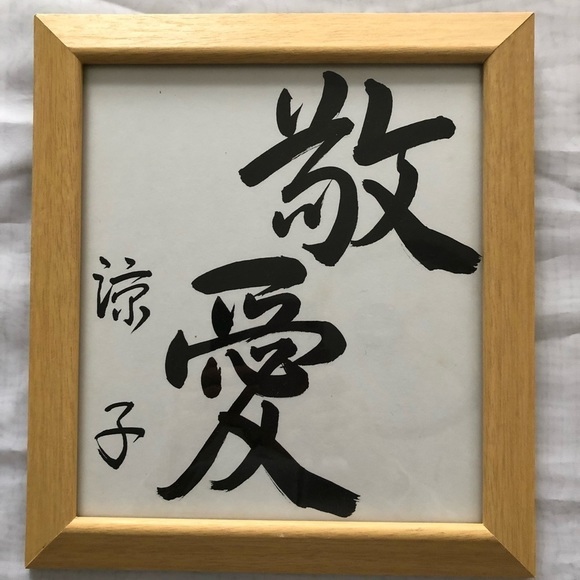 敬愛
涼子